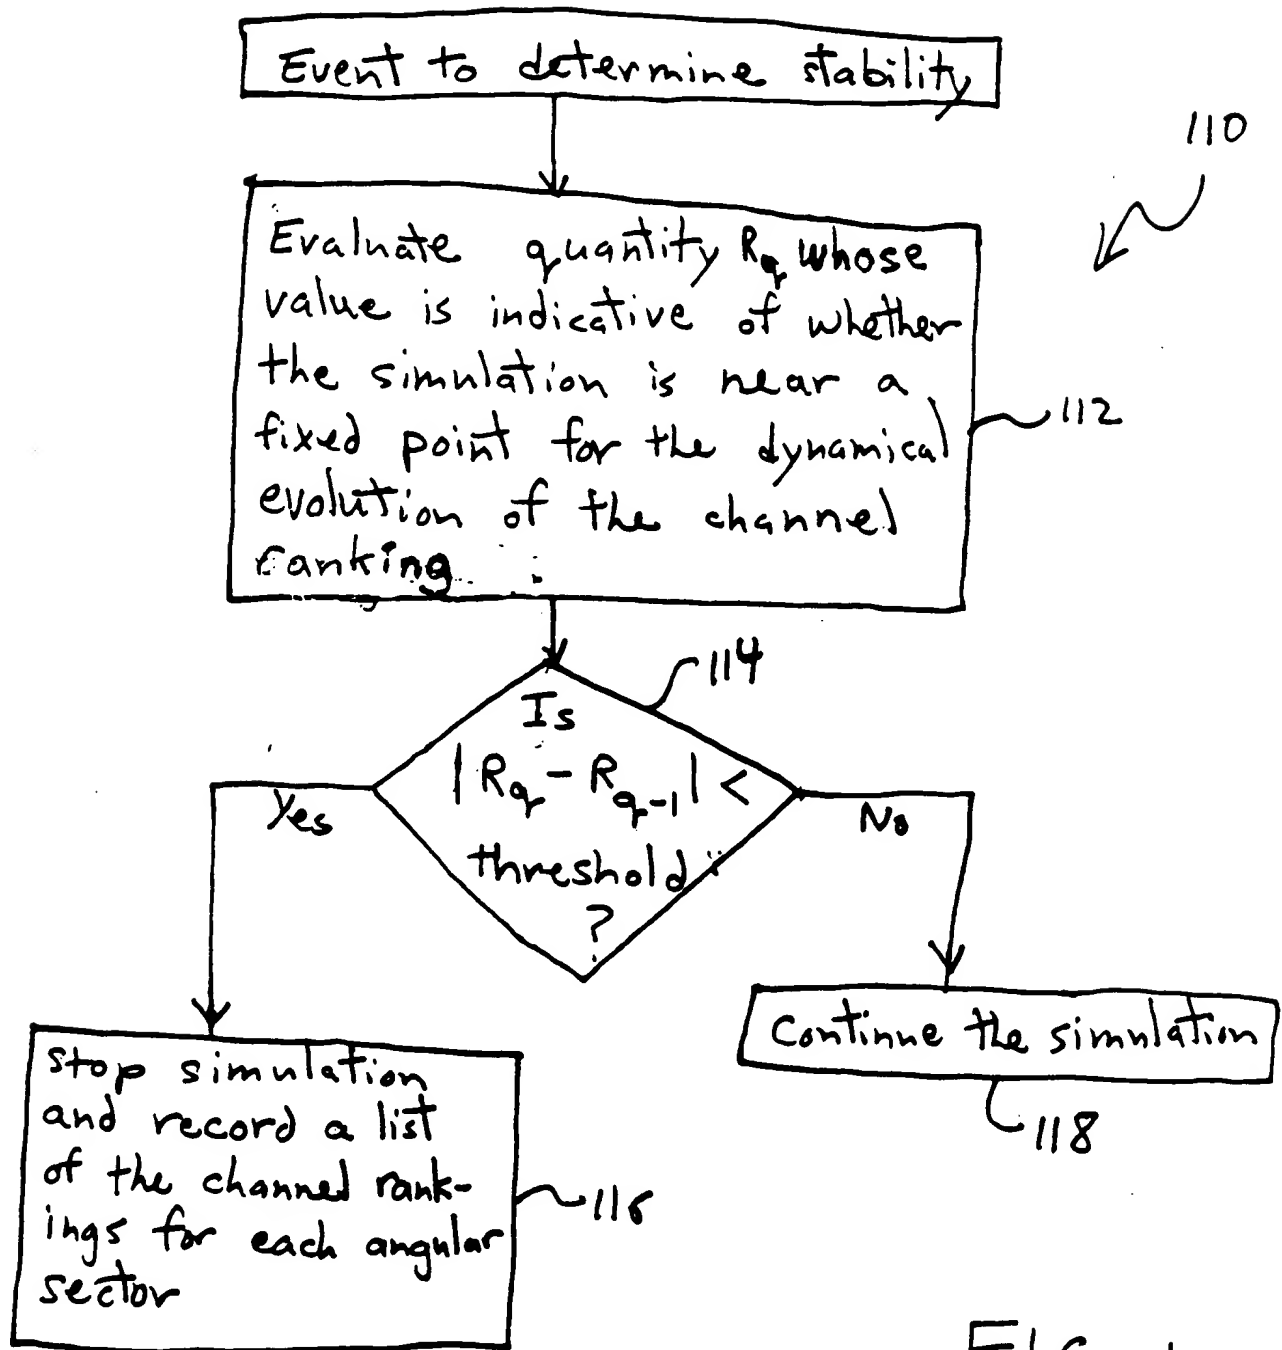 Event to determine stability
110
Evaluate quantity Rq whose
value is indicative of whether
the simulation is near a
fixed point for the dynamical
evolution of the channel
ranking
112
114
Is
|Rq - Rq-1| <
threshold
?
Yes
No
Continue the simulation
118
Stop simulation
and record a list
of the channel rank-
ings for each angular
sector
116